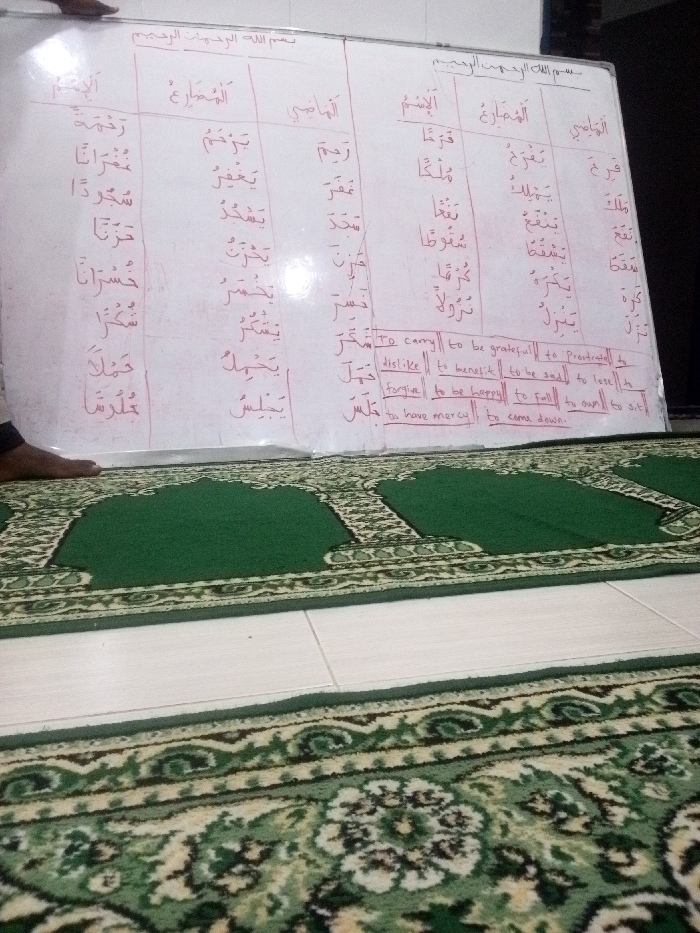 بسم الله الرحمن الرحيم
اَلْمَاضِي اَلْمُضَارِعُ اَلْإِسْمُ
فَرِحَ يَفْرَحُ فَرَحًا
مَلَكَ يَمْلِكُ مُلْكًا
نَفَعَ يَنْفَعُ نَفْعًا
سَقَطَ يَسْقُطُ سُقُوطًا
كَرِهَ يَكْرَهُ كُرْهًا
نَزَلَ يَنْزِلُ نُزُولًا
To carry || to be grateful || to Prostrate || to
dislike || to benefit || to be sad || to lose || to
forgive || to be happy || to fall || to own || to sit ||
to have mercy || to come down.
بسم الله الرحمن الرحيم
اَلْمَاضِي اَلْمُضَارِعُ اَلْإِسْمُ
رَحِمَ يَرْحَمُ رَحْمَةً
غَفَرَ يَغْفِرُ غُفْرَانًا
سَجَدَ يَسْجُدُ سُجُودًا
حَزِنَ يَحْزَنُ حَزَنًا
خَسِرَ يَخْسَرُ خُسْرَانًا
شَكَرَ يَشْكُرُ شُكْرًا
حَمَلَ يَحْمِلُ حَمْلًا
جَلَسَ يَجْلِسُ جُلُوسًا